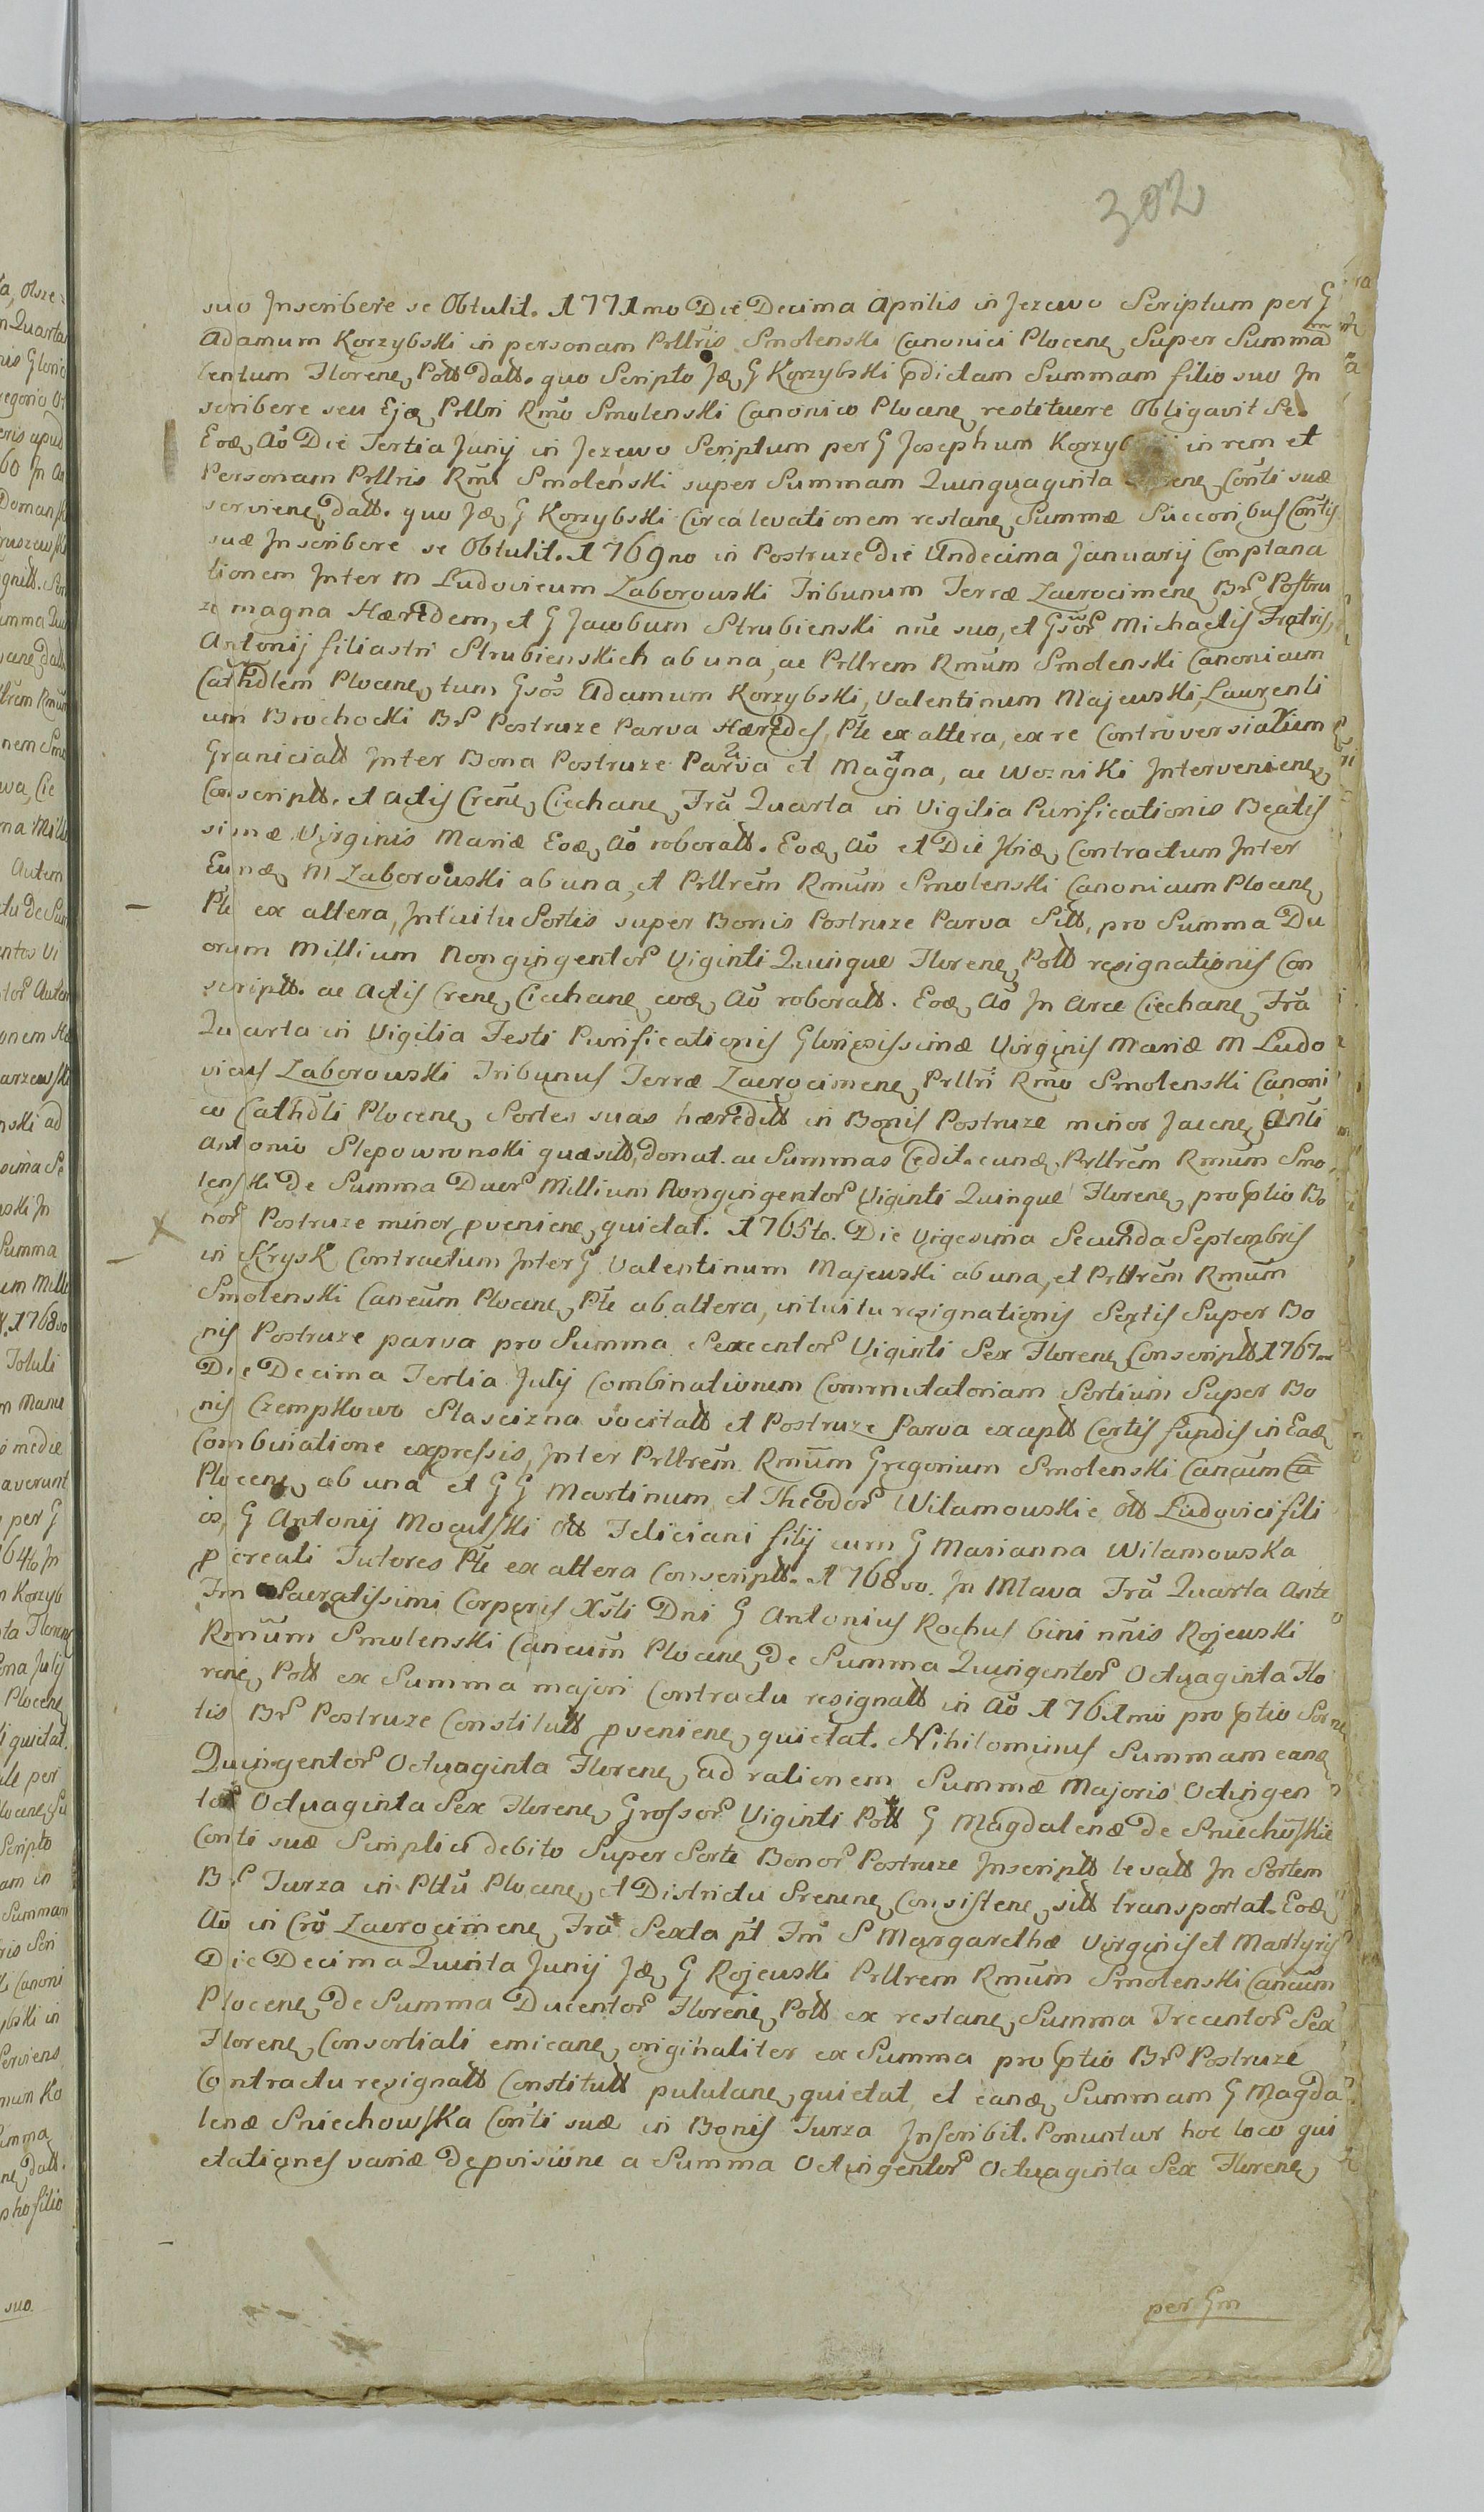 302
suo Inscribere se Obtulit. 1771mo Die Decima Aprilis in Jezewo Scriptum per G
Adamum Korzybski in personam Prllris Smolenski Canonici Plocene, Super Summam
Centum Florene, Poltt datt. quo Scripto Jdę G Korzybski pdictam Summam filio suo In
scribere seu Ejdę Prllri Rmo Smolenski Canonico Plocene, restituere Obligavit Se.
Eodę Ao Die Tertia Junij in Jezewo Scriptum per G Josephum Korzyb in rem et
Personam Prllris Rmi Smolenski super Summam Quinquaginta Conti suæ
serviene, datt. quo Jdę G Korzybski Circa levationem restane, Summæ Succoribus Contis
suæ Inscribere se Obtulit. 1769no in Postruze Die Undecima Januarij Conplana
tionem Inter M Ludovicum Zaborowski Tribunum Terræ Zacrocimene, Br Postru
ze magna Hæredem, et G Jacobum Strubienski nne suo, et Gsor Michaelis Fratris,
Antonij filiastri Strubienskich ab una, ac Prllrem Rmum Smolenski Canonicum
Cathdlem Plocene, tum Gsos Adamum Korzybski, Valentinum Majewski, Laurenti
um Brochocki Br Postruze Parva Hæredes, Pte ex altera, ex re Controversiarum
Graniciatt Inter Bona Postruze Parva et Magna, ac Wozniki Interveniene,
Conscriptt. et actis Crene, Ciechane, Fra Quarta in Vigilia Purificationis Beatis
simæ Virginis Mariæ Eodę Ao roboratt. Eodę Ao et Die Ibidę Contractum Inter
Eundę M Zaborowski ab una, et Prllrem Rmum Smolenski Canonicum Plocene,
Pte ex altera, Intuitu Sortis super Bonis Postruze Parva Sitt, pro Summa Du
orum Millium Nongingentor Viginti Quinque Florene, Poltt resignationis Con
scriptt. ac Actis Crene, Ciechane, eodę Ao roboratt. Eodę Ao In Arce Ciechane, Fra
Quarta in Vigilia Festi Purificationis Gloriosissimæ Virginis Mariæ M Ludo
vicus Zaborowski Tribunus Terræ Zacrocimene, Prllri Rmo Smolenski Canoni
co Cathdli Plocene, Sortes suas hæreditt in Bonis Postruze minor Jacene, Anti
Antonio Slepowronski quæsitt, donat. ac Summas Cedit. eundę Prllrem Rmum Smo
lenski de Summa Duor Millium Nongingentor Viginti Quinque Florene, pro ptio Bo
nor Postruze minor pveniene, quietat. 1765to. Die Vigesima Secunda Septembris
in Krysk Contractum Inter G Valentinum Majewski ab una, et Prllrem Rmum
Smolenski Caneum Plocene, Pte ab altera, intuitu resignationis Sortis Super Bo
nis Postruze parva pro Summa Sexcentor Viginti Sex Florene, Conscriptt 1767mo
Die Decima Tertia Julij Combinationem Commutatoriam Sortium Super Bo
nis Czempkowo Slascizna vocitatt et Postruze Parva exceptt Certis fundis in Eadę
Combinatione expressis, Inter Prllrem Rmum Gregorium Smolenski Caneum
Plocene, ab una et G G Martinum et Theodor Wilamowskie ott Ludovici fili
os, G Antonij Mocarski ott Feliciani filij cum G Marianna Wilamowska
pcreali Tutores Pte ex altera Conscriptt. 1768vo. In Mlava Fra Quarta Ante
Fm Sacratissimi Corporis Xsti Dni G Antonius Rochus bini nnis Rojewski
Rmum Smolenski Caneum Plocene, De Summa Quingentor Octuaginta Flo
rene, Poltt ex Summa majori Contractu resignatt in Ao 1761mo pro ptio Sor
tis Br Postruze Constitutt pveniene, quietat. Nihilominus Summam eandę
Quingentor Octuaginta Florene, ad rationem Summæ Majoris Octingen
tor Octuaginta Sex Florene, Grossor Viginti Poltt G Magdalenæ de Sniechowskie
Conti suæ Simplici debito Super Sorte Bonor Postruze Inscriptt levatt In Sortem
Br Turza in Pttu Plocene, et Districtu Srenene, Consistene, sitt transportat. Eodę
Ao in Cro Zacrocimene, Fra Sexta pt Fm S Margarethæ Virginis et Martyris
Die Decima Quinta Junij Jdę G Rojewski Prllrem Rmum Smolenski Caneum
Plocene, De Summa Ducentor Florene, Poltt ex restane, Summa Trecentor Sex
Florene, Consortiali emicane, originaliter ex Summa pro ptio Br Postruze
Contractu resignatt Constitutt pululane, quietat, et eandę Summam G Magda
lenæ Sniechowska Conti suæ in Bonis Turza Inscribit. Ponuntur hoc loco qui
etationes variæ De pvisione a Summa Octingentor Octuaginta Sex Florene,
per Gm